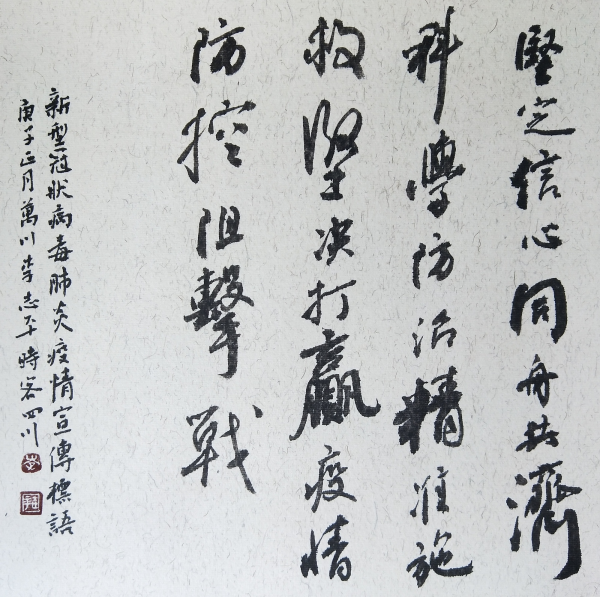 堅定信心同舟共濟
科學防治精准施
救堅决打贏疫情
防控阻擊戰
新型冠狀病毒肺炎疫情宣傳標語
庚子正月萬川李志平時客四川